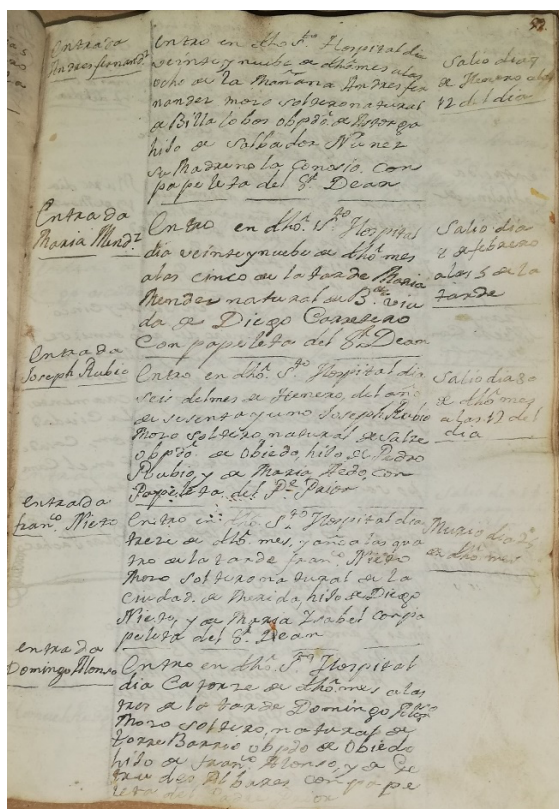 52.
Entrada
Andres fernandz
Entro en dho. Sto. Hospital dia
veinte y nuebe de dho mes a las
ocho de la Mañana Andres fer
nandez moso soltero natural
de Billalobos obpdo. de Astorga
hijo de Salbador Nuñez
su Madre no la Conosio. Con
papeleta del Sr. Dean
Salio dia 7
de Henero a las
12 del dia
Entrada
Maria Mendz
Entro en dho. Sto. Hospital
dia veinte y nuebe de dho mes
a las cinco de la tarde Maria
Mendez natural de viu
da de Diego Carretero
Con papeleta del Sr. Dean
Salio dia
2 de febrero
a las 5 de la
tarde
Entrada
Joseph Rubio
Entro en dho. Sto. Hospital dia
seis del mes de Henero, del año
de sesenta y uno Joseph Rubio
Moso soltero, natural de
obpdo. de Obiedo, hijo de Pedro
Rubio, y de Maria con
Papeleta del Pe. Prior
Salio dia 20
de dho mes
a las 12 del
dia
entrada
franco. Nieto
Entro en dho. Sto. Hospital dia
trese de dho. mes, y año a las qua
tro de la tarde franco. Nieto
Moso soltero natural de la
Ciudad de Merida, hijo de Diego
Nieto, y de Maria Isabel con pa
peleta del Sr. Dean
Murio dia
de dho mes
entrada
Domingo Alonso
Entro en dho. Sto. Hospital
dia Catorze de dho. mes a las
tres de la tarde Domingo Alonso
Moso soltero, natural de
torre Barrio obpdo de Obiedo
hijo de franco Alonso, y de Ge
trudes Albares con pape
leta del